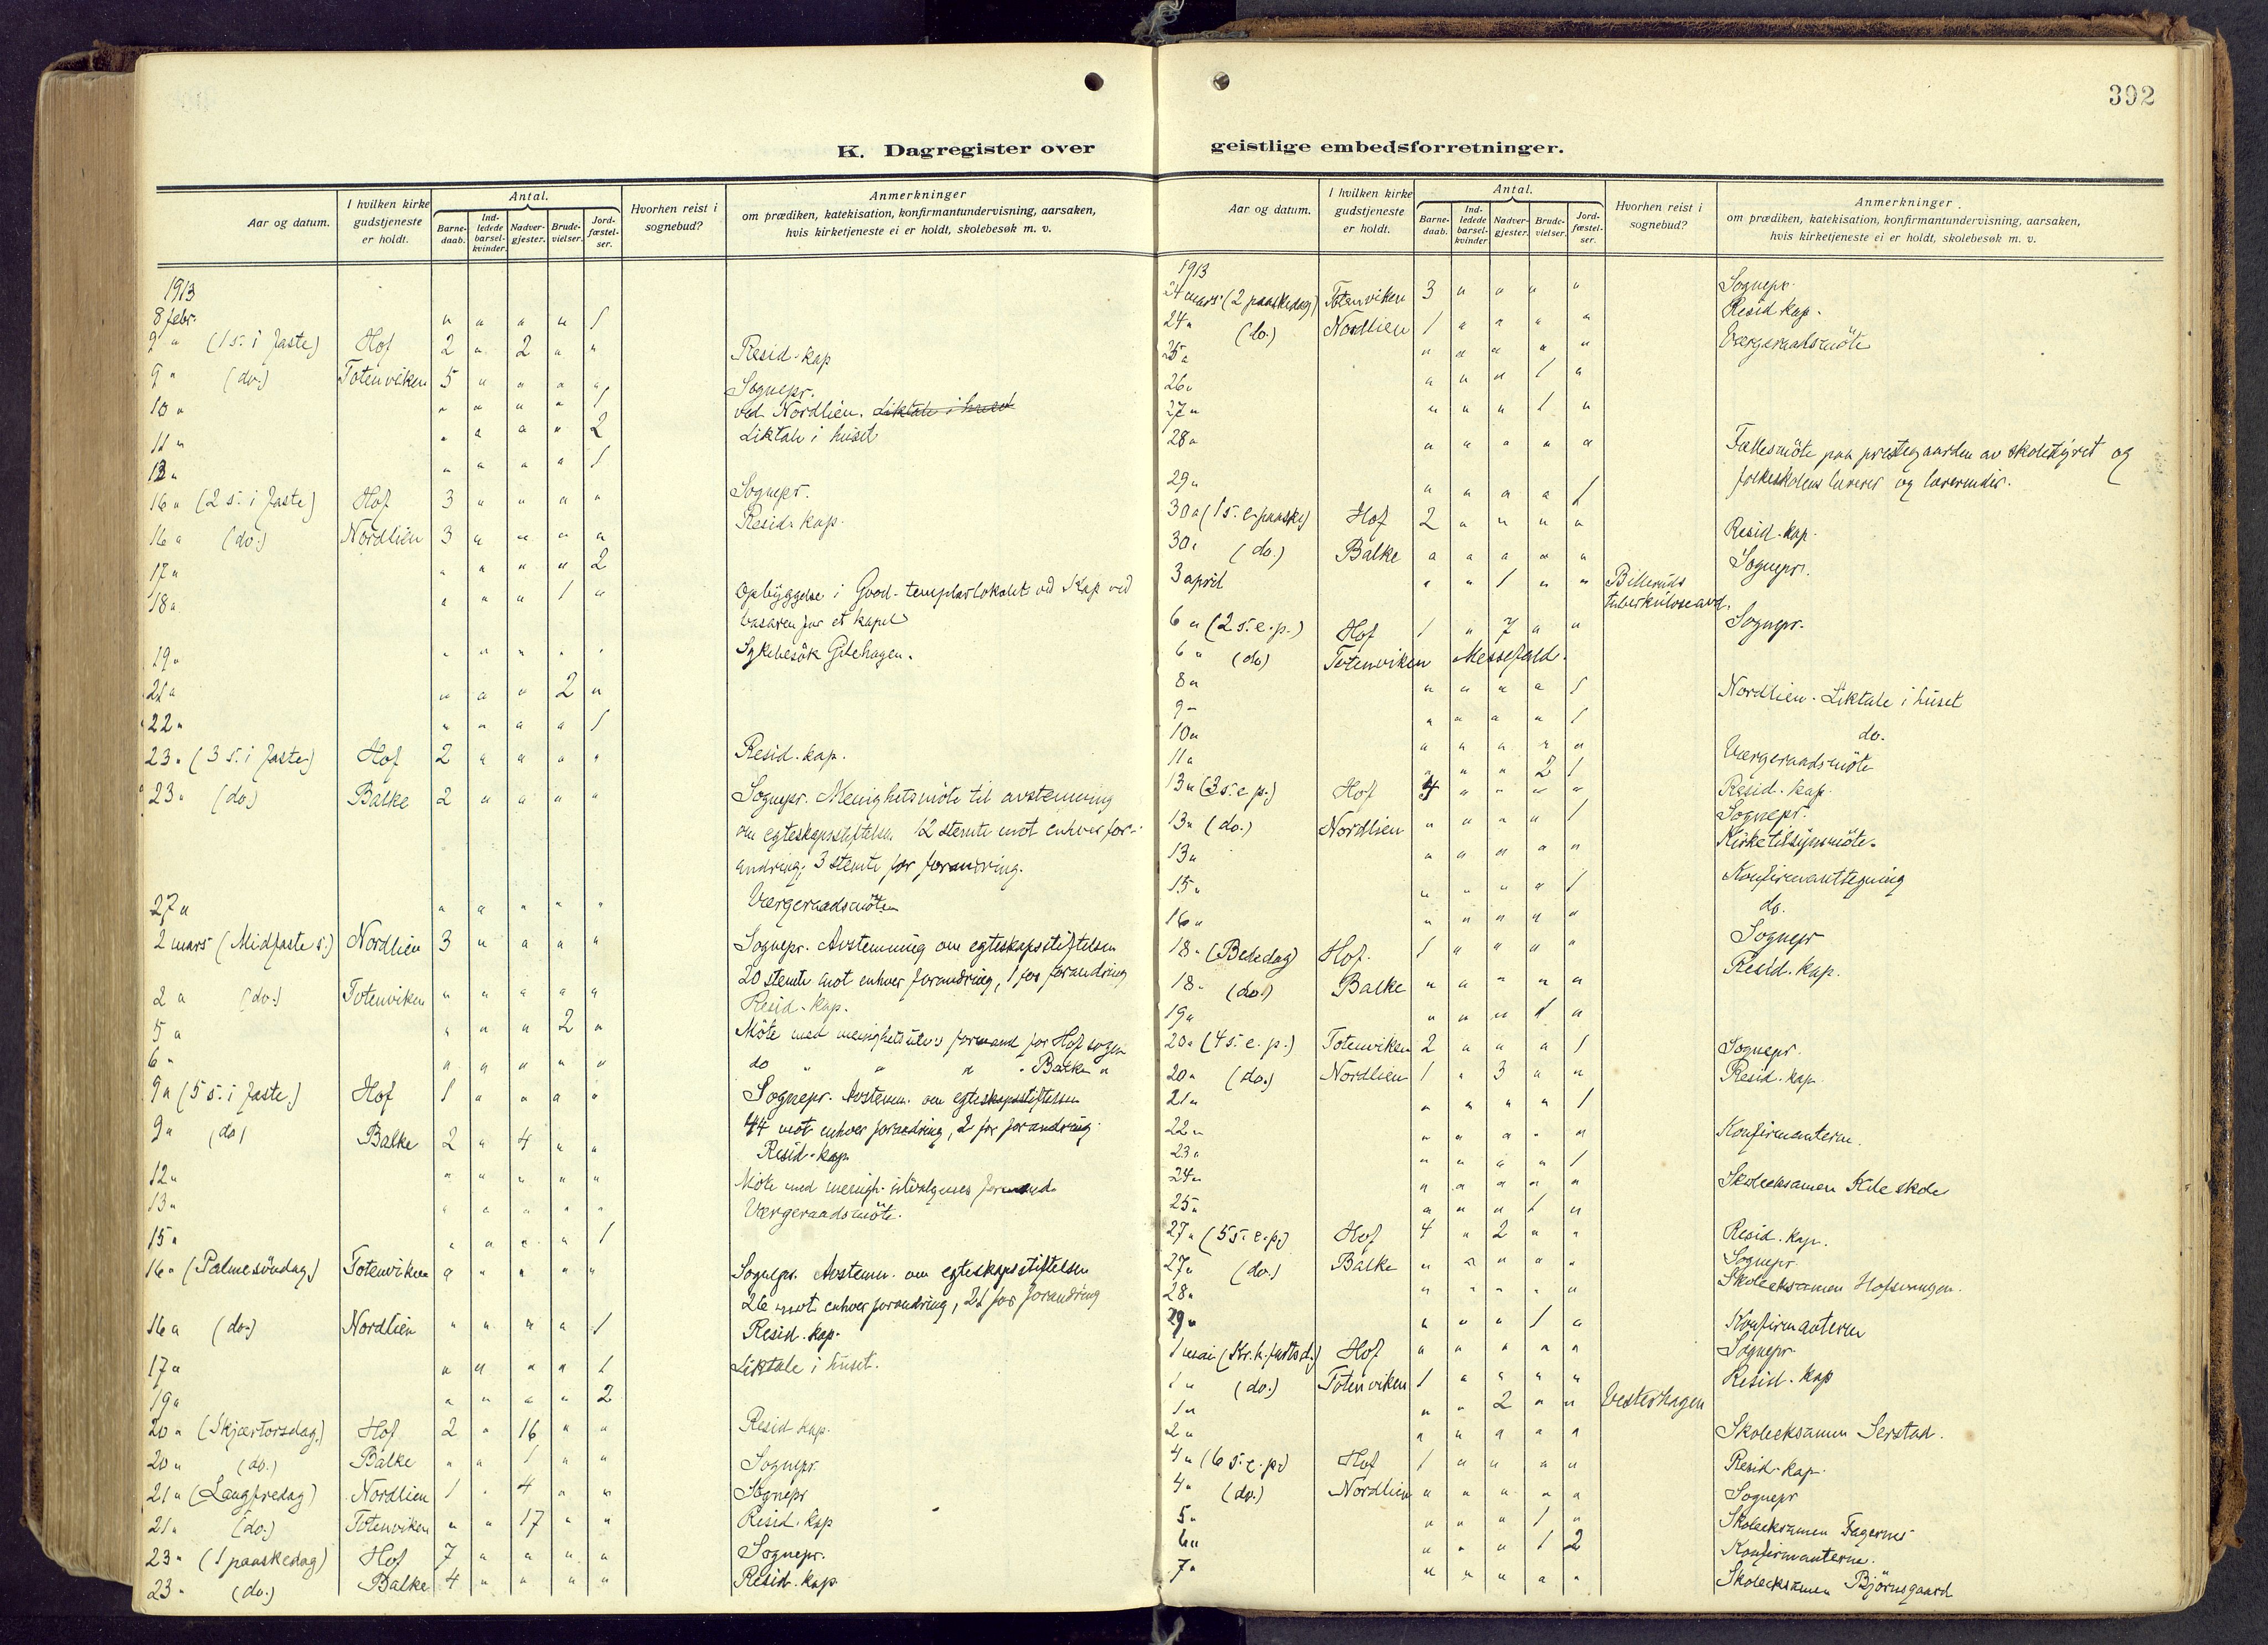 392
K. Dagregister over
Aar og datum. I hvilken kirke gudstjeneste er holdt. Antal. Barne-daab. Ind-ledede barsel-kvinder. Nadver-gjester. Brude-vielser. Jord-fæstel-ser. Hvorhen reist i sognebud? Anmerkninger om prædiken, katekisation, konfirmantundervisning, aarsaken, hvis kirketjeneste ei er holdt, skolebesøk m. v.
1913
8 febr. " " " " 1
9 " (1 s. i faste) Hof 2 " 2 " " Resid. kap
9 " (do.) Totenviken 5 " " " " Sognepr.
10 " " " " " 1 ved Nordlien. Liktale i huset
11 " " " " " 2 Liktale i huset
13 " " " " " 1
16 " (2 s. i faste) Hof 3 " " " " Sognepr.
16 " (do.) Nordlien 3 " " " " Resid. kap.
17 " " " " " 2
18 " " " " 1 " Opbyggelse i Good-templarlokalet ved Kap ved
basaren for et kapel
19 " " " " " " Sykebesök Gilehagen.
21 " " " " 2 "
22 " " " " " 1
23 " (3 s. i faste) Hof 2 " " " " Resid. kap.
23 " (do.) Balke 2 " " " " Sognepr. Menighetsmöte til avstemning
om egteskapsstiftelsen 12 stemte mot enhver for-
andring, 3 stemte for forandring.
27 " " " " " " Værgeraadsmöte
2 mars (Midfaste s.) Nordlien 3 " " " " Sognepr. Avstemning om egteskapsstiftelsen
20 stemte mot enhver forandring, 1 for forandring
2 " (do.) Totenviken " " " " " Resid. kap.
5 " " " " 2 " Möte med menighetsutv. formand for Hof sogn
6 " " " " " " do " " " Balke "
9 " (5 s. i faste.) Hof 1 " " " " Sognepr. Avstemn. om egteskapsstiftelsen
44 mot enhver forandring, 2 for forandring.
9 " (do) Balke 2 " 4 " " Resid. kap.
12 " " " " " " Möte med menigh. utvalgenes formænd.
13 " " " " " " Værgeraadsmöte.
15 " " " " " 1
16 " (Palmesöndag) Totenviken " " " " " Sognepr. Avstemn. om egteskapsstiftelsen
26 mot enhver forandring, 21 for forandring
16 " (do.) Nordlien " " " " 1 Resid. kap.
17 " " " " " 1 Liktale i huset.
19 " " " " " 2
20 " (Skjærtorsdag.) Hof 2 " 16 " " Resid kap.
20 " (do.) Balke " " 1 " " Sognepr.
21 " (Langfredag) Nordlien 1 " 4 " " Sognepr
21 " (do.) Totenviken " " 17 " " Resid. kap
23 " (1 paaskedag) Hof 7 " " " " Sognepr.
23 " (do.) Balke 4 " " " " Resid. kap.
geistlige embedsforretninger.
Aar og datum. I hvilken kirke gudstjeneste er holdt. Antal. Barne-daab. Ind-ledede barsel-kvinder Nadver-gjester. Brude-vielser. Jord-fæstel-ser. Hvorhen reist i sognebud? Anmerkninger. om prædiken, katekisation, konfirmantundervisning, aarsaken, hvis kirketjeneste ei er holdt, skolebesøk m. v.
1913
24 mars (2 paaskedag) Totenviken 3 " " " " Sognepr.
24 " (do.) Nordlien 1 " " " " Resid kap.
25 " " " " " " Værgeraadsmöte
26 " " " " 1 "
27 " " " " 1 "
28 " " " " " " Fællesmöte paa prestegaarden av skolestyret og
folkeskolens lærere og lærerinder.
29 " " " " " 1
30 " (1 s. e. paaske) Hof 2 " " " " Resid. kap.
30 " (do.) Balke " " " " " Sognepr.
3 april " " 1 " " Billeruds
tuberkuloseavd.
6 " (2 s. e. p.) Hof 1 " 7 " " Sognepr.
6 " (do) Totenviken Messefald.
8 " " " " " 1 Nordlien. Liktale i huset
9 " " " " " 1 do.
10 " " " " " " Værgeraadsmöte
11 " " " " 2 1
13 " (3 s. e. p.) Hof 4 " " " " Resid. kap.
13 " (do.) Nordlien " " " " 1 Sognepr.
13 " " " " " " Kirketilsynsmöte.
15 " " " " " 1 Konfirmanttegning
16 " " " " " " do.
18 " (Bededag) Hof. 1 " " " " Sognepr
18 " (do.) Balke " " " " " Resid. kap.
19 " " " " 1 "
20 " (4 s. e. p.) Totenviken 2 " " " 1 Sognepr.
20 " (do.) Nordlien 1 " 3 " " Resid. kap
21 " " " " " 1
22 " " " " " " Konfirmanterne.
23 " " " " " 1
24 " " " " " " Skoleeksamen Kile skole
25 " " " " 1 "
27 " (5 s. e. p.) Hof 4 " 2 " " Resid. kap.
27 " (do.) Balke " " " " " Sognepr.
28 " " " " " " Skoleeksamen Hofsvangen.
29 " " " " 1 " Konfirmanterne
1 mai (Kr. h. fartsd.) Hof " " " " " Sognepr.
1 " (do.) Totenviken 1 " " " " Resid. kap
1 " " " 2 " " Vesterhagen
2 " " " " " " Skoleeksamen Serstad.
4 " (6 s. e. p.) Hof 1 " " " " Resid. kap.
4 " (do.) Nordlien " " " " " Sognepr
5 " " " " 1 " Skoleeksamen Fagernes
6 " " " " 1 2 Konfirmanterne.
7 " " " " " " Skoleeksamen Björnsgaard